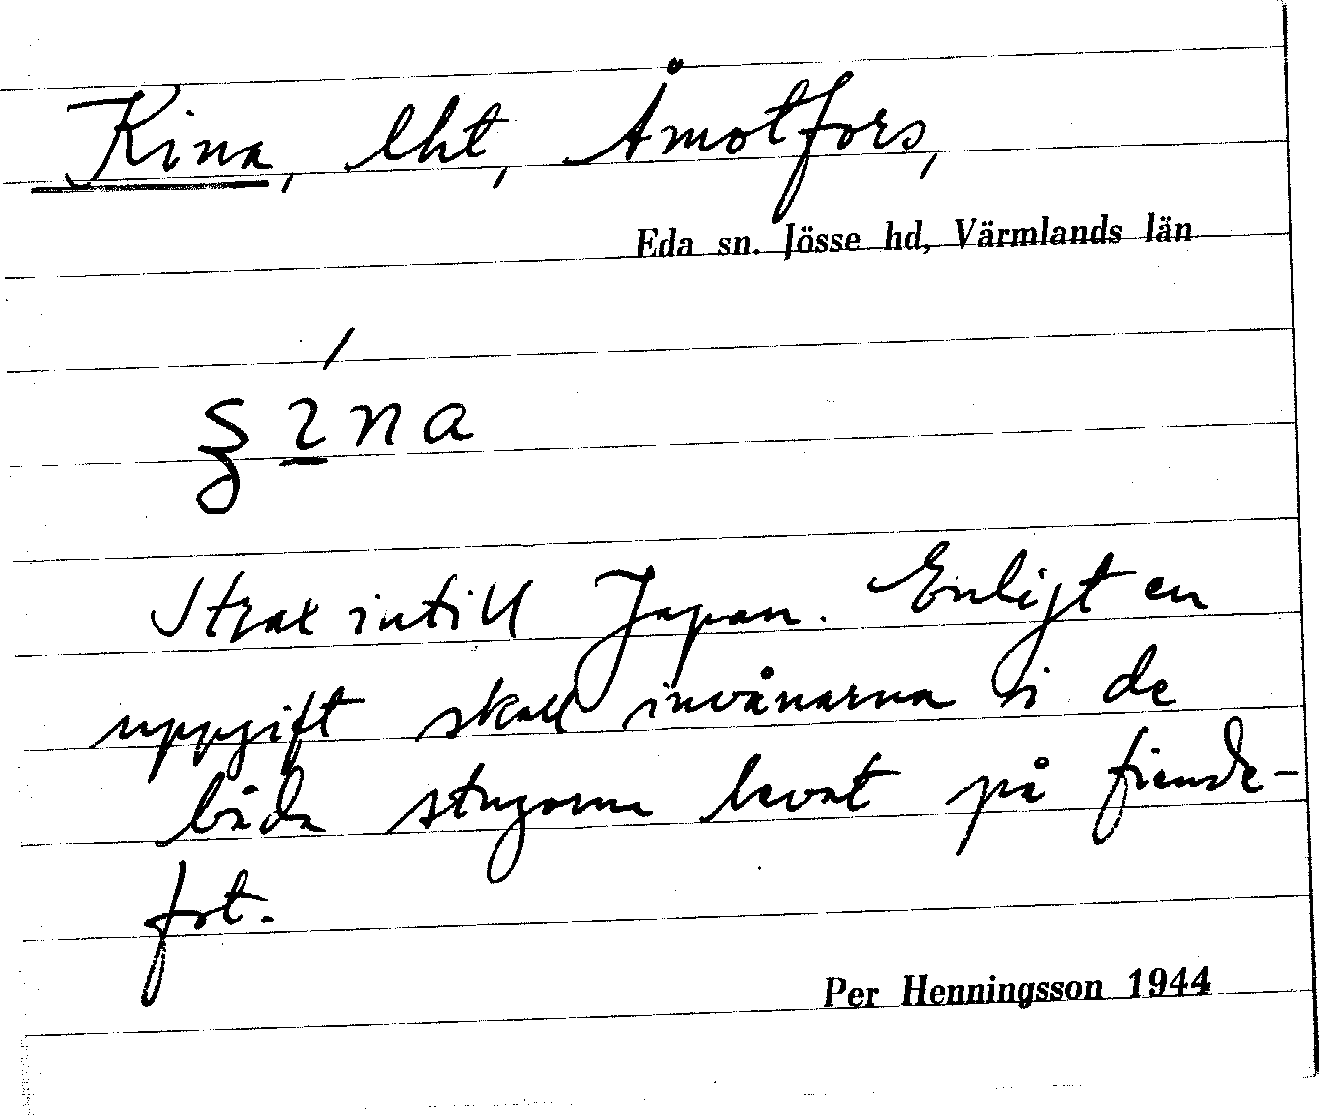 Kina, lht, Åmotfors,
Eda sn. Jösse hd, Värmlands län
Strax intill Japan. Enligt en
uppgift skall invånarna i de
båda stugorna levat på fiende-
fot.
Per Henningsson 1944